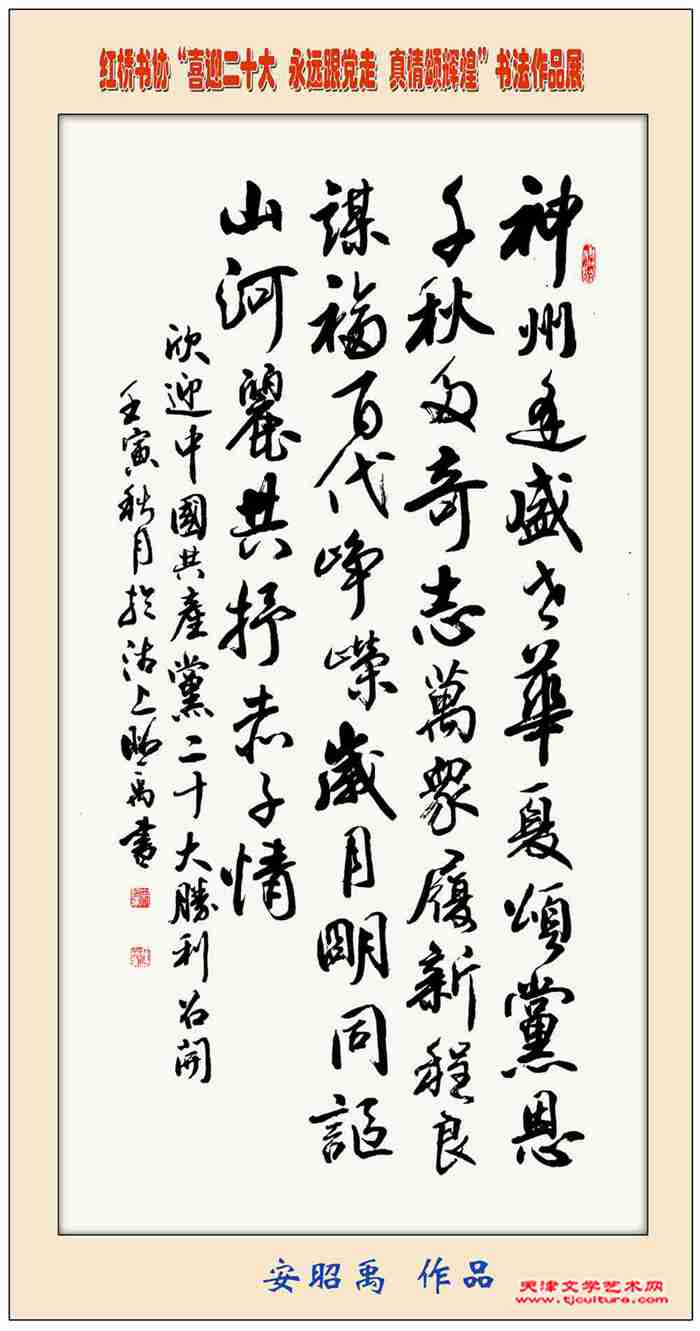 红桥书协“喜迎二十大 永远跟党走 真情颂辉煌”书法作品展
神州逢盛世華夏頌黨恩
千秋多奇志萬衆履新程良
謀福百代崢嶸歲月明同謳
山河麗共抒赤子情
欣迎中國共產黨二十大勝利召開
壬寅秋月於沽上昭禹書
安昭禹 作品
天津文学艺术网
www.tjculture.com